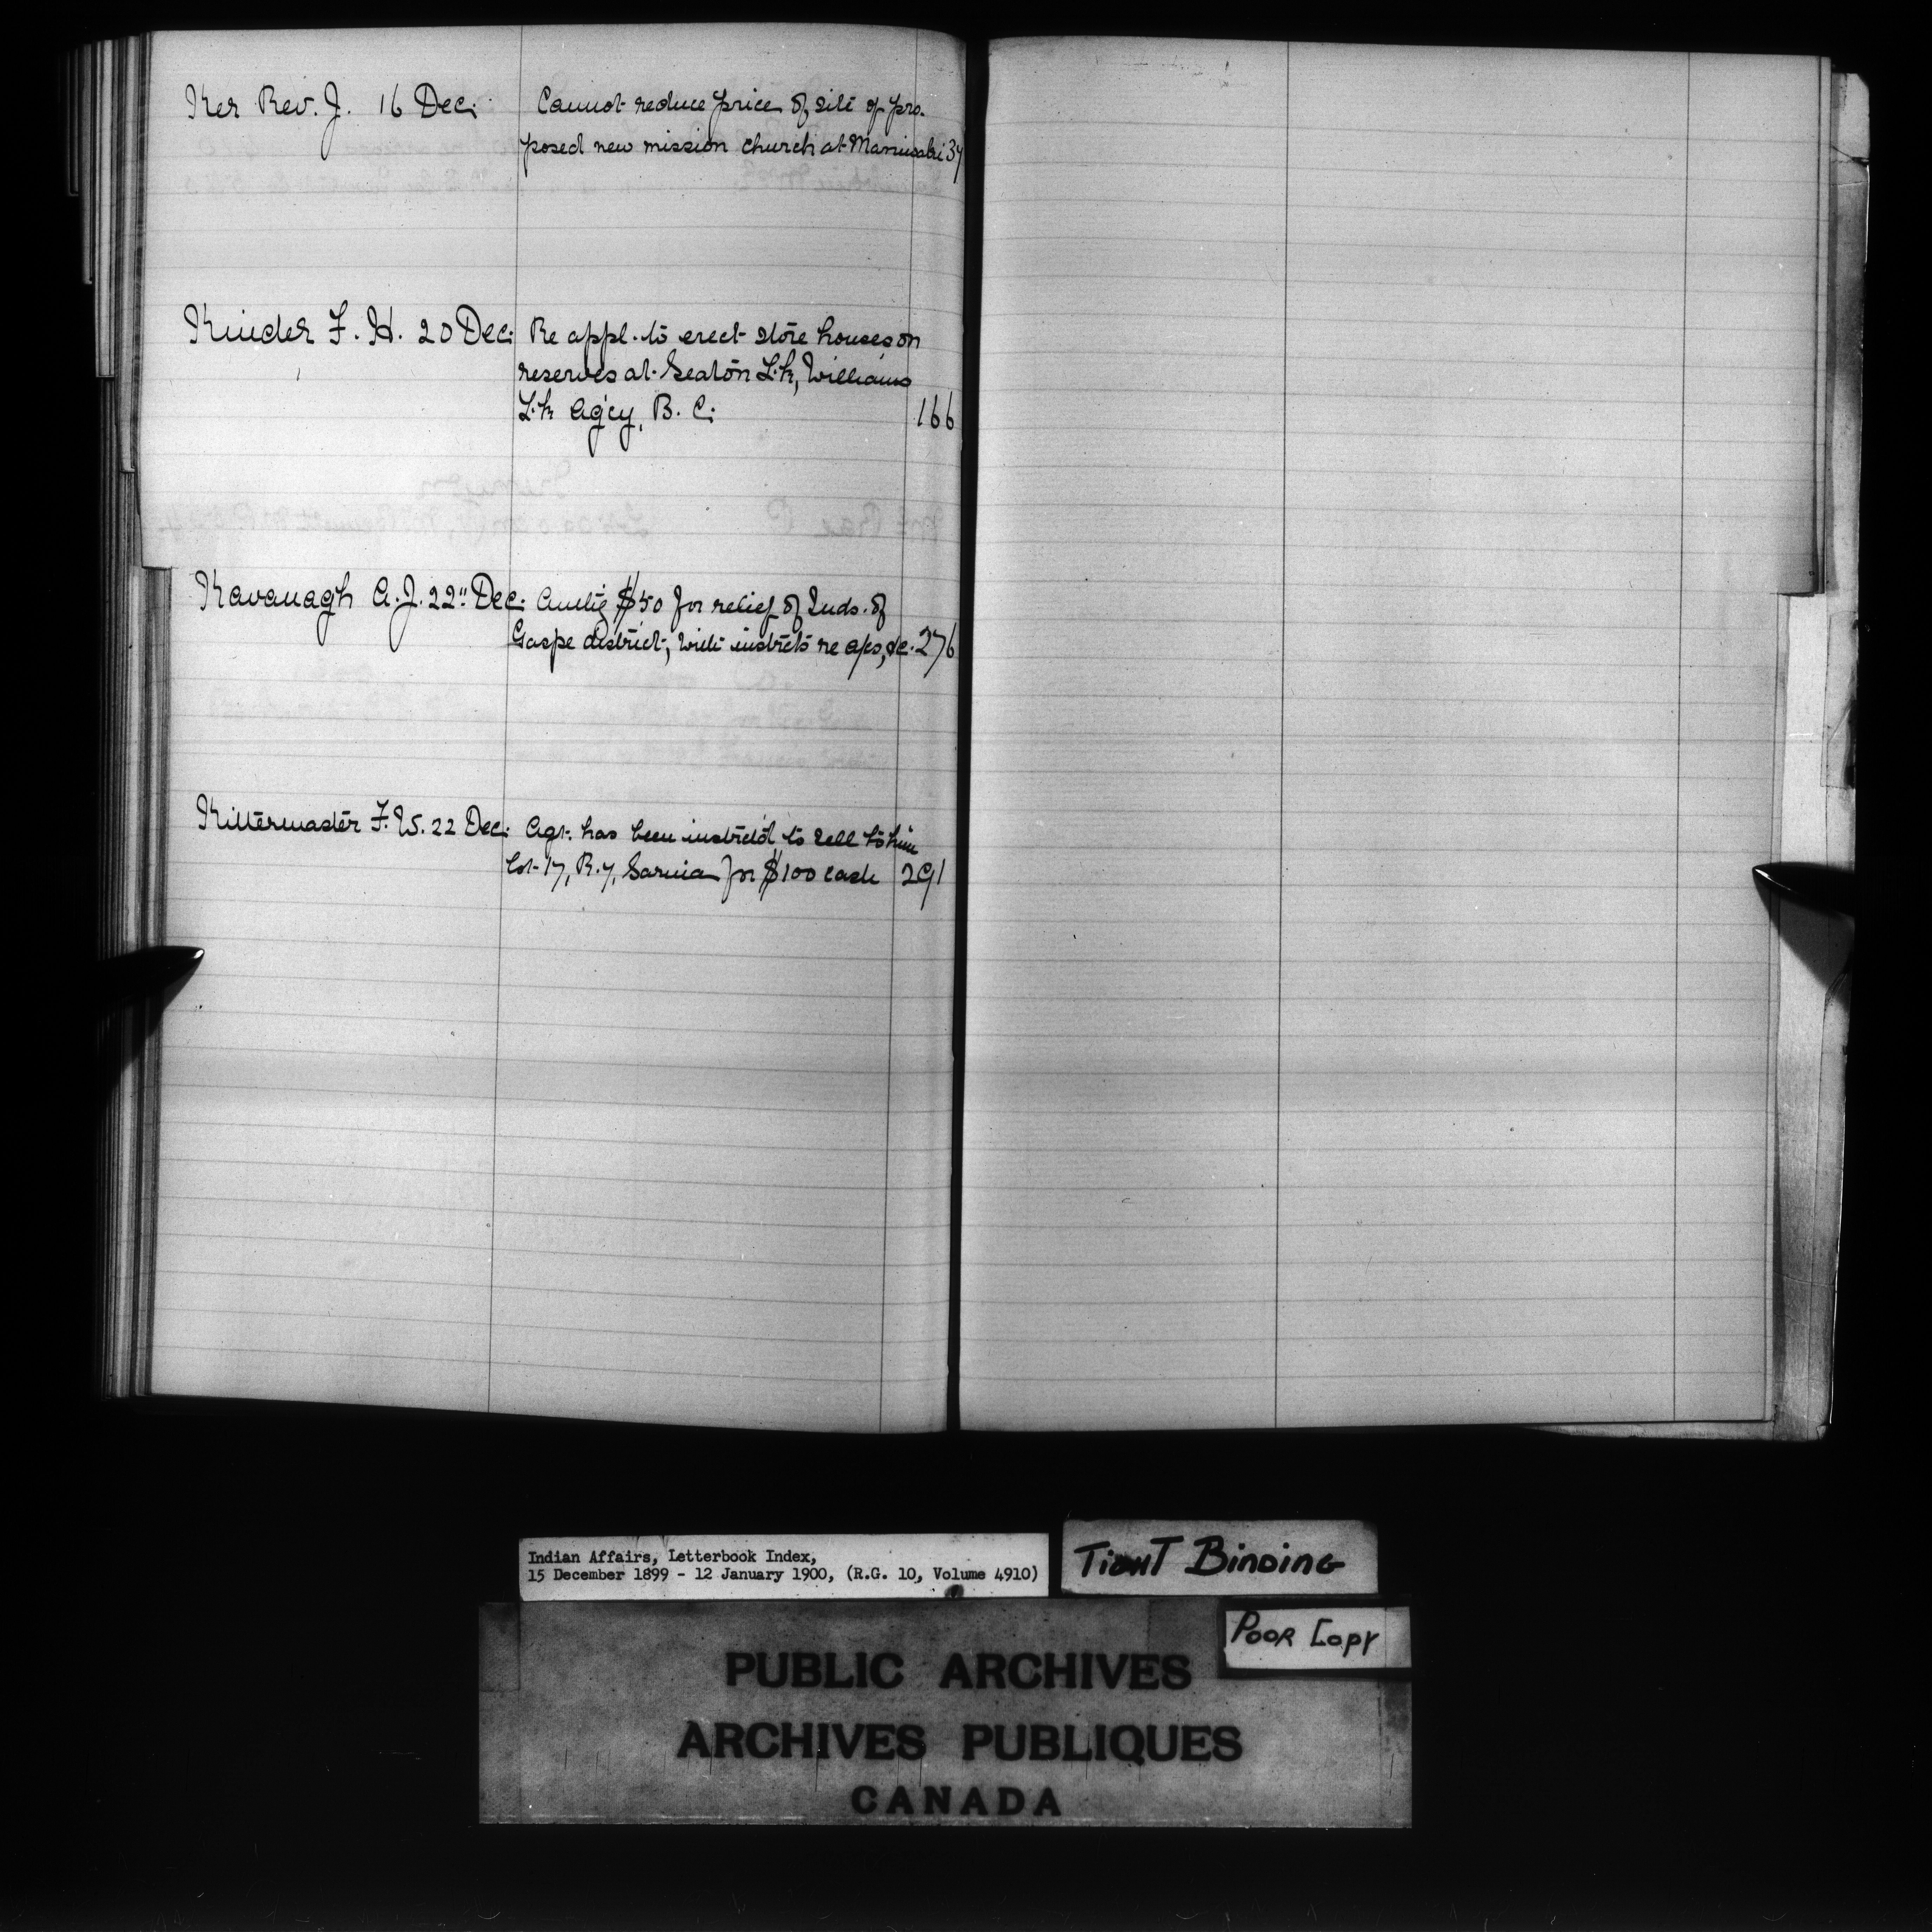 Ker Rev. J. 16 Dec. Cannot reduce price of site of pro-
posed new mission church at Maniwaki 37
Kinder F. H. 20 Dec. Re appl. to erect store houses on
reserves at Seaton Lk, Williams
Lk Ag'cy, B. C. 166
Kavanagh A. J. 22" Dec. $50 for relief of Inds. of
Gaspe district, with instrcts re aps, &c. 276
Kittermaster F. W. 22 Dec. Agt. has been instrctd to sell to him
Lot 17, R. 7, Sarnia for $100 cash 291
Indian Affairs, Letterbook Index,
15 December 1899 - 12 January 1900, (R.G. 10, Volume 4910)
Tight Binding
Poor Copy
PUBLIC ARCHIVES
ARCHIVES PUBLIQUES
CANADA